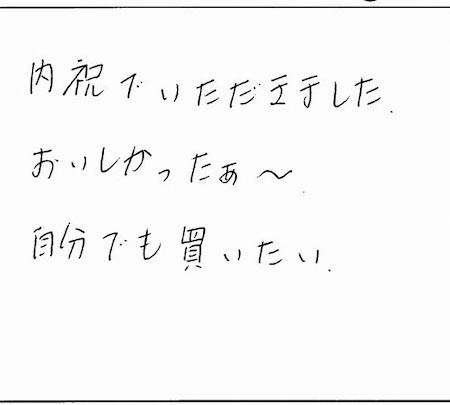 内祝でいただきました.
おいしかったぁ〜.
自分でも買いたい.